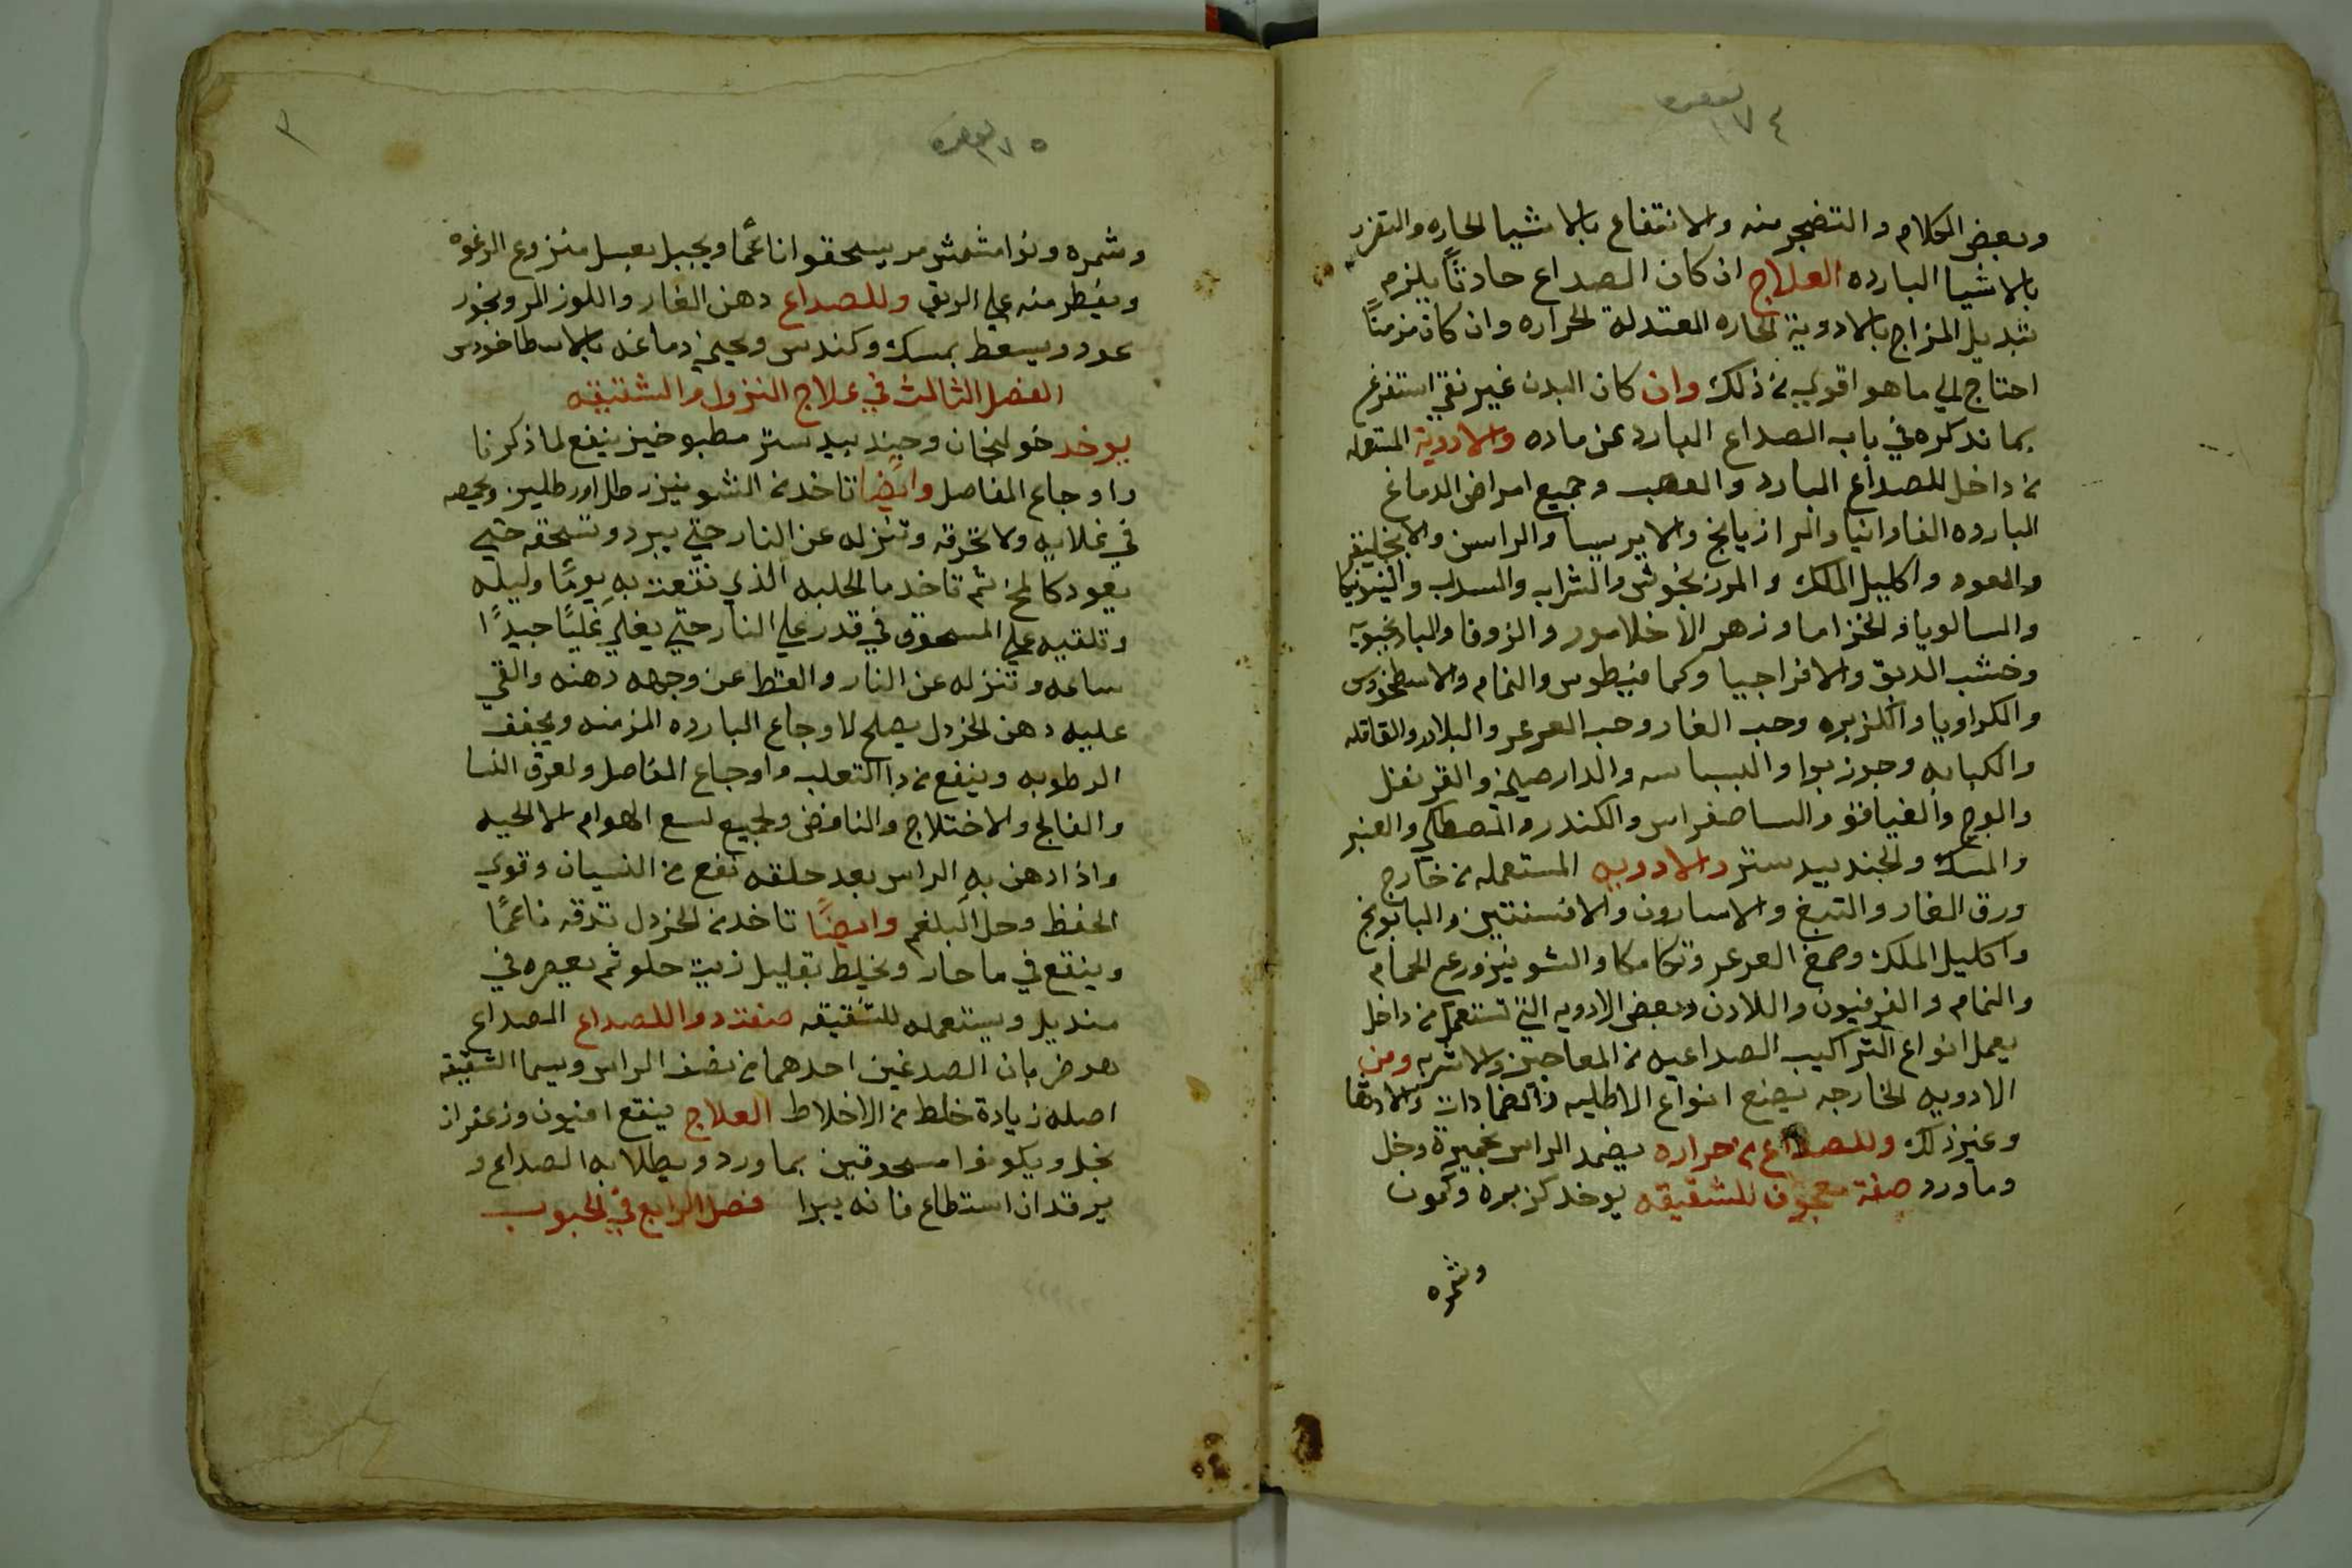 ١٧٤
وبعض الكلام والتضجر منه والانتفاع بالاشيا الحاره والتضرر
بالاشيا البارده العلاج ان كان الصداع حادثًا يلزم
تبديل المزاج بالادوية الحاره المعتدلة الحراره وان كان مزمنًا
احتاج الي ما هو اقوي من ذلك وان كان البدن غير نقي استفرغ
بما نذكره في باب الصداع البارد عن ماده والادوية المستعمله
من داخل للصداع البارد والعصب وجميع امراض الدماغ
البارده الفاوانيا والرازيانج والايرسا والراسن والانجليقه
والعود واكليل الملك والمرزنجوش والشراب والسداب والبنونيكا
والسالويا والخزاما وزهر الاخلامور والزوفا والبادرنجبويه
وخشب الدبق والافراجيا وكمافيطوس والنمام والاسطخودس
والكراويا والكزبره وحب الغار وحب العرعر والبلادر والقاقله
والكبابه وجوزبوا والبسباسه والدارصيني والقرنفل
والوج والغيافق والساصفراس والكندر والمصطكي والعنبر
والمسك والجندبيدستر والادويه المستعمله من خارج
ورق الغار والتبغ والاسارون والافسنتين والبابونج
واكليل الملك وصمغ العرعر وتكامكا والشونيز ورعي الحمام
والنمام والفرفيون واللادن وبعض الادويه التي تستعمل من داخل
يعمل انواع التراكيب الصداعيه من المعاجين والاشربه ومن
الادويه الخارجه يصنع انواع الاطليه والضمادات والادهان
وغير ذلك وللصداع من حراره يضمد الراس بخميرة وخل
وماورد صفة معجون للشقيقه يوخد كزبره وكمون
وشمره
١٧٥
وشمره ونوا مشمش مر يسحقوا ناعمًا ويجبل بعسل منزوع الرغوه
ويفطر منه علي الريق وللصداع دهن الغار واللوز المر وبخور
عود ويسعط بمسك وكندس ويحيي دماغه بالاسطاخودس
الفصل الثالث في علاج النزول والشقيقه
يوخد خولنجان وجندبيدستر مطبوخين ينفع لما ذكرنا
واوجاع المفاصل وايضًا تاخد من الشونيز رطل اورطلين وتحمصه
في غلايه ولا تحرقه وتنزله عن النار حتي يبرد وتسحقه حتي
يعود كالمخ ثم تاخد ما الحلبه الذي نقعت به يومًا وليله
وتلقيه علي المسحوق في قدر علي النار حتي يغلي غليًا جيدًا
ساعه وتنزله عن النار والقط عن وجهه دهنه والقي
عليه دهن الخردل يصلح لاوجاع البارده المزمنه ويجفف
الرطوبه وينفع من دا الثعلب واوجاع المفاصل ولعرق النسا
والفالج والاختلاج والنافض ولجميع لسع الهوام الا الحيه
واذا ادهن به الراس بعد حلقه نفع من النسيان وقوي
الحفظ وحل البلغم وايضًا تاخد من الخردل تدقه ناعمًا
وينقع في ما حار ويخلط بقليل زيت حلو ثم يعصره في
منديل ويستعمله للشقيقه صفة دوا للصداع الصداع
هو ضربان الصدغين احدهما من نصف الراس ويسما الشقيقه
اصله زيادة خلط من الاخلاط العلاج ينقع افيون وزعفران
بخل ويكونوا مسحوقين بماورد ويطلا به الصداع و
يرقد ان استطاع فانه يبرا فصل الرابع في الحبوب